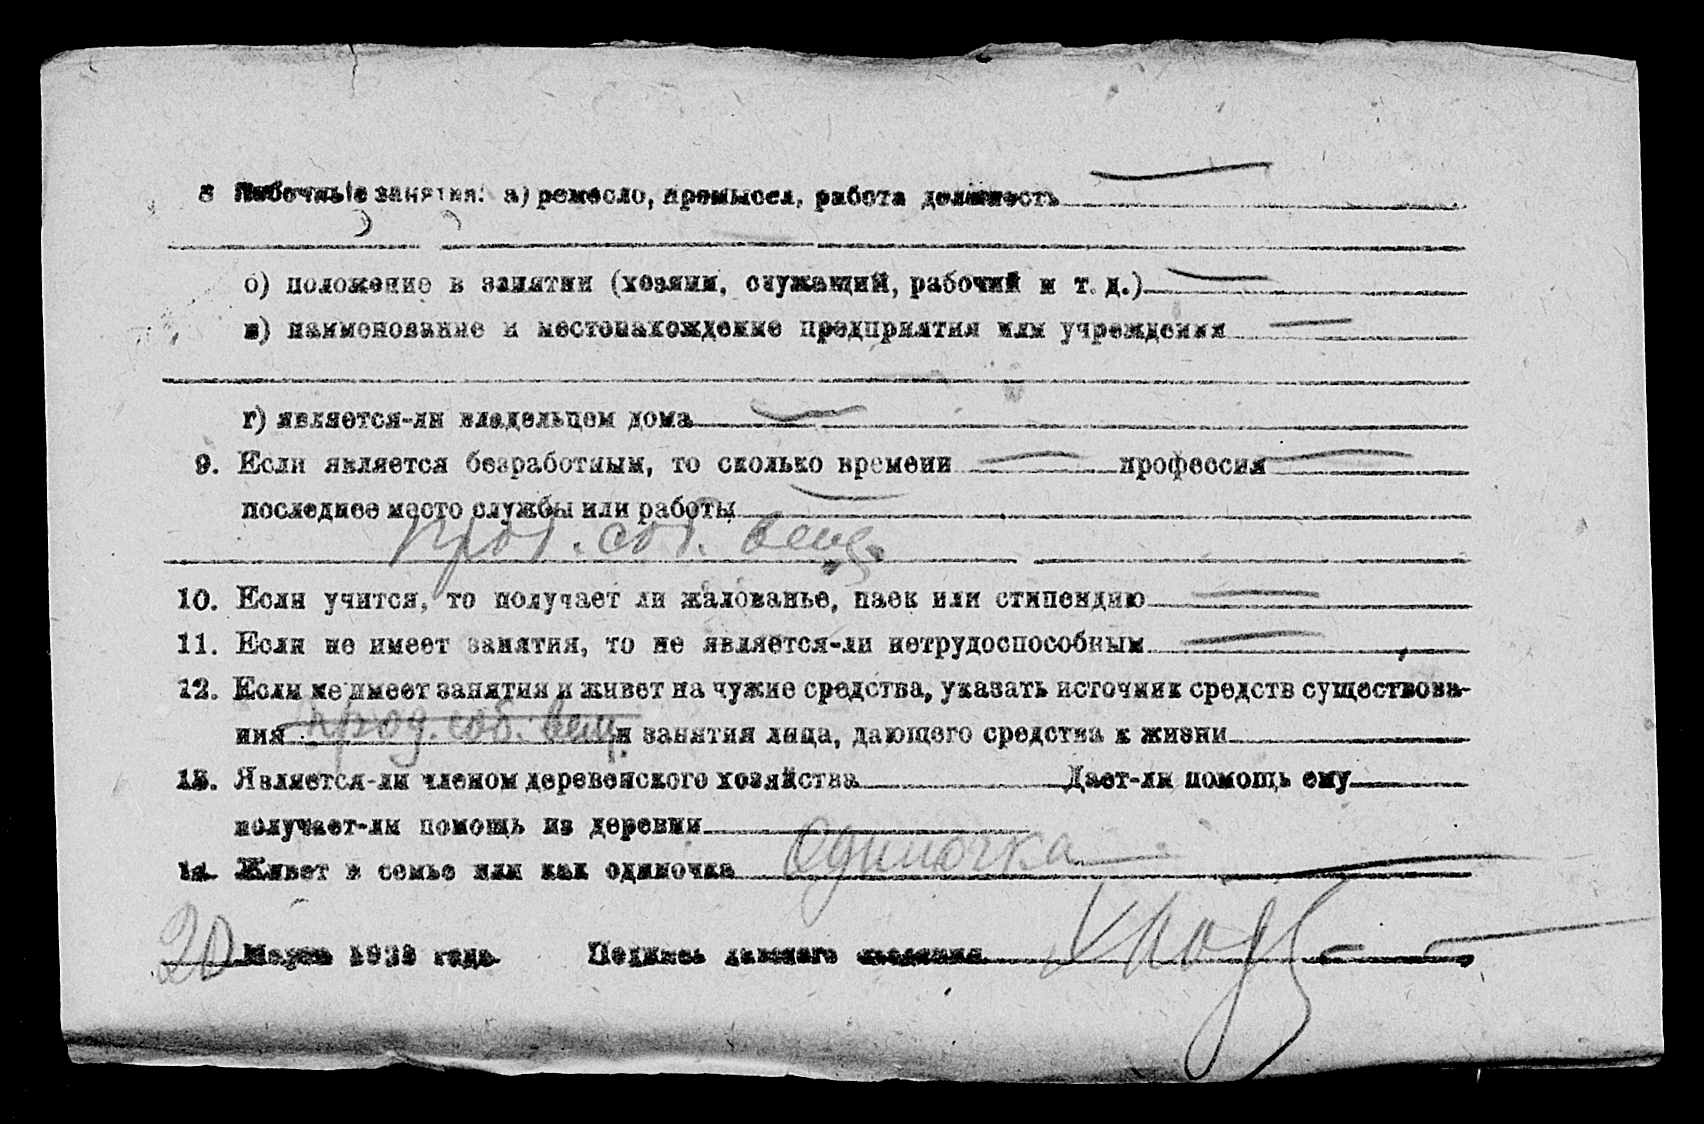 8 Побочные занятия: а) ремесло, промысел, работа должность —
б) положение в занятии (хозяин, служащий, рабочий и т. д.) —
в) наименование и местонахождение предприятия или учреждения —
г) является-ли владельцем дома —
9. Если является безработным, то сколько времени — профессия —
последнее место службы или работы —
прод. соб. вещ.
10. Если учится, то получает ли жалованье, паек или стипендию —
11. Если не имеет занятия, то не является-ли нетрудоспособным —
12. Если не имеет занятия и живет на чужие средства, указать источник средств существова-
ния прод. соб. вещ. и занятия лица, дающего средства к жизни
13. Является-ли членом деревенского хозяйства Дает-ли помощь ему
получает-ли помощь из деревни
14. Живет в семье или как одиночка Одиночка —
20 Марта 193 года. Подпись давшего сведения